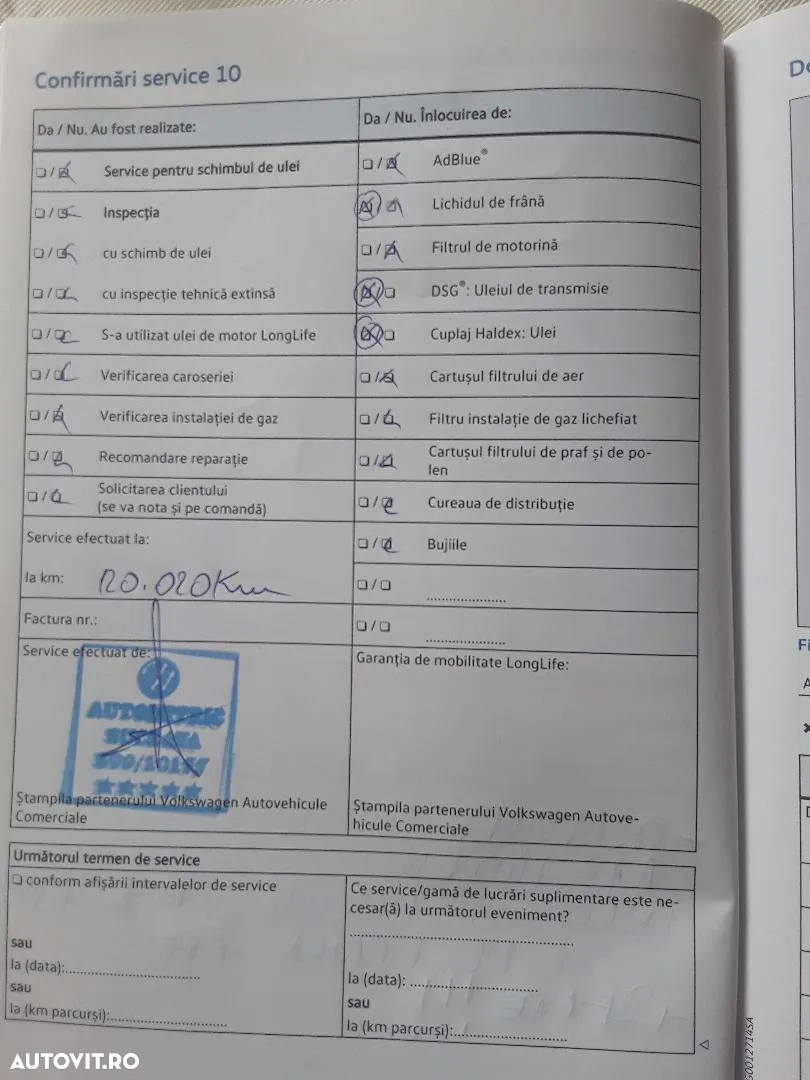 Confirmări service 10
Da / Nu. Au fost realizate:
Service pentru schimbul de ulei
Inspecția
cu schimb de ulei
cu inspecție tehnică extinsă
S-a utilizat ulei de motor LongLife
Verificarea caroseriei
Verificarea instalației de gaz
Recomandare reparație
Solicitarea clientului
(se va nota și pe comandă)
Service efectuat la:
la km: 120.020 Km
Factura nr.:
Service efectuat de:
Ștampila partenerului Volkswagen Autovehicule
Comerciale
Da / Nu. Înlocuirea de:
AdBlue®
Lichidul de frână
Filtrul de motorină
DSG®: Uleiul de transmisie
Cuplaj Haldex: Ulei
Cartușul filtrului de aer
Filtru instalație de gaz lichefiat
Cartușul filtrului de praf și de po-
len
Cureaua de distribuție
Bujiile
Garanția de mobilitate LongLife:
Ștampila partenerului Volkswagen Autove-
hicule Comerciale
Următorul termen de service
conform afișării intervalelor de service
sau
la (data):
sau
la (km parcurși):
Ce service/gamă de lucrări suplimentare este ne-
cesar(ă) la următorul eveniment?
la (data):
sau
la (km parcurși):
AUTOVIT.RO